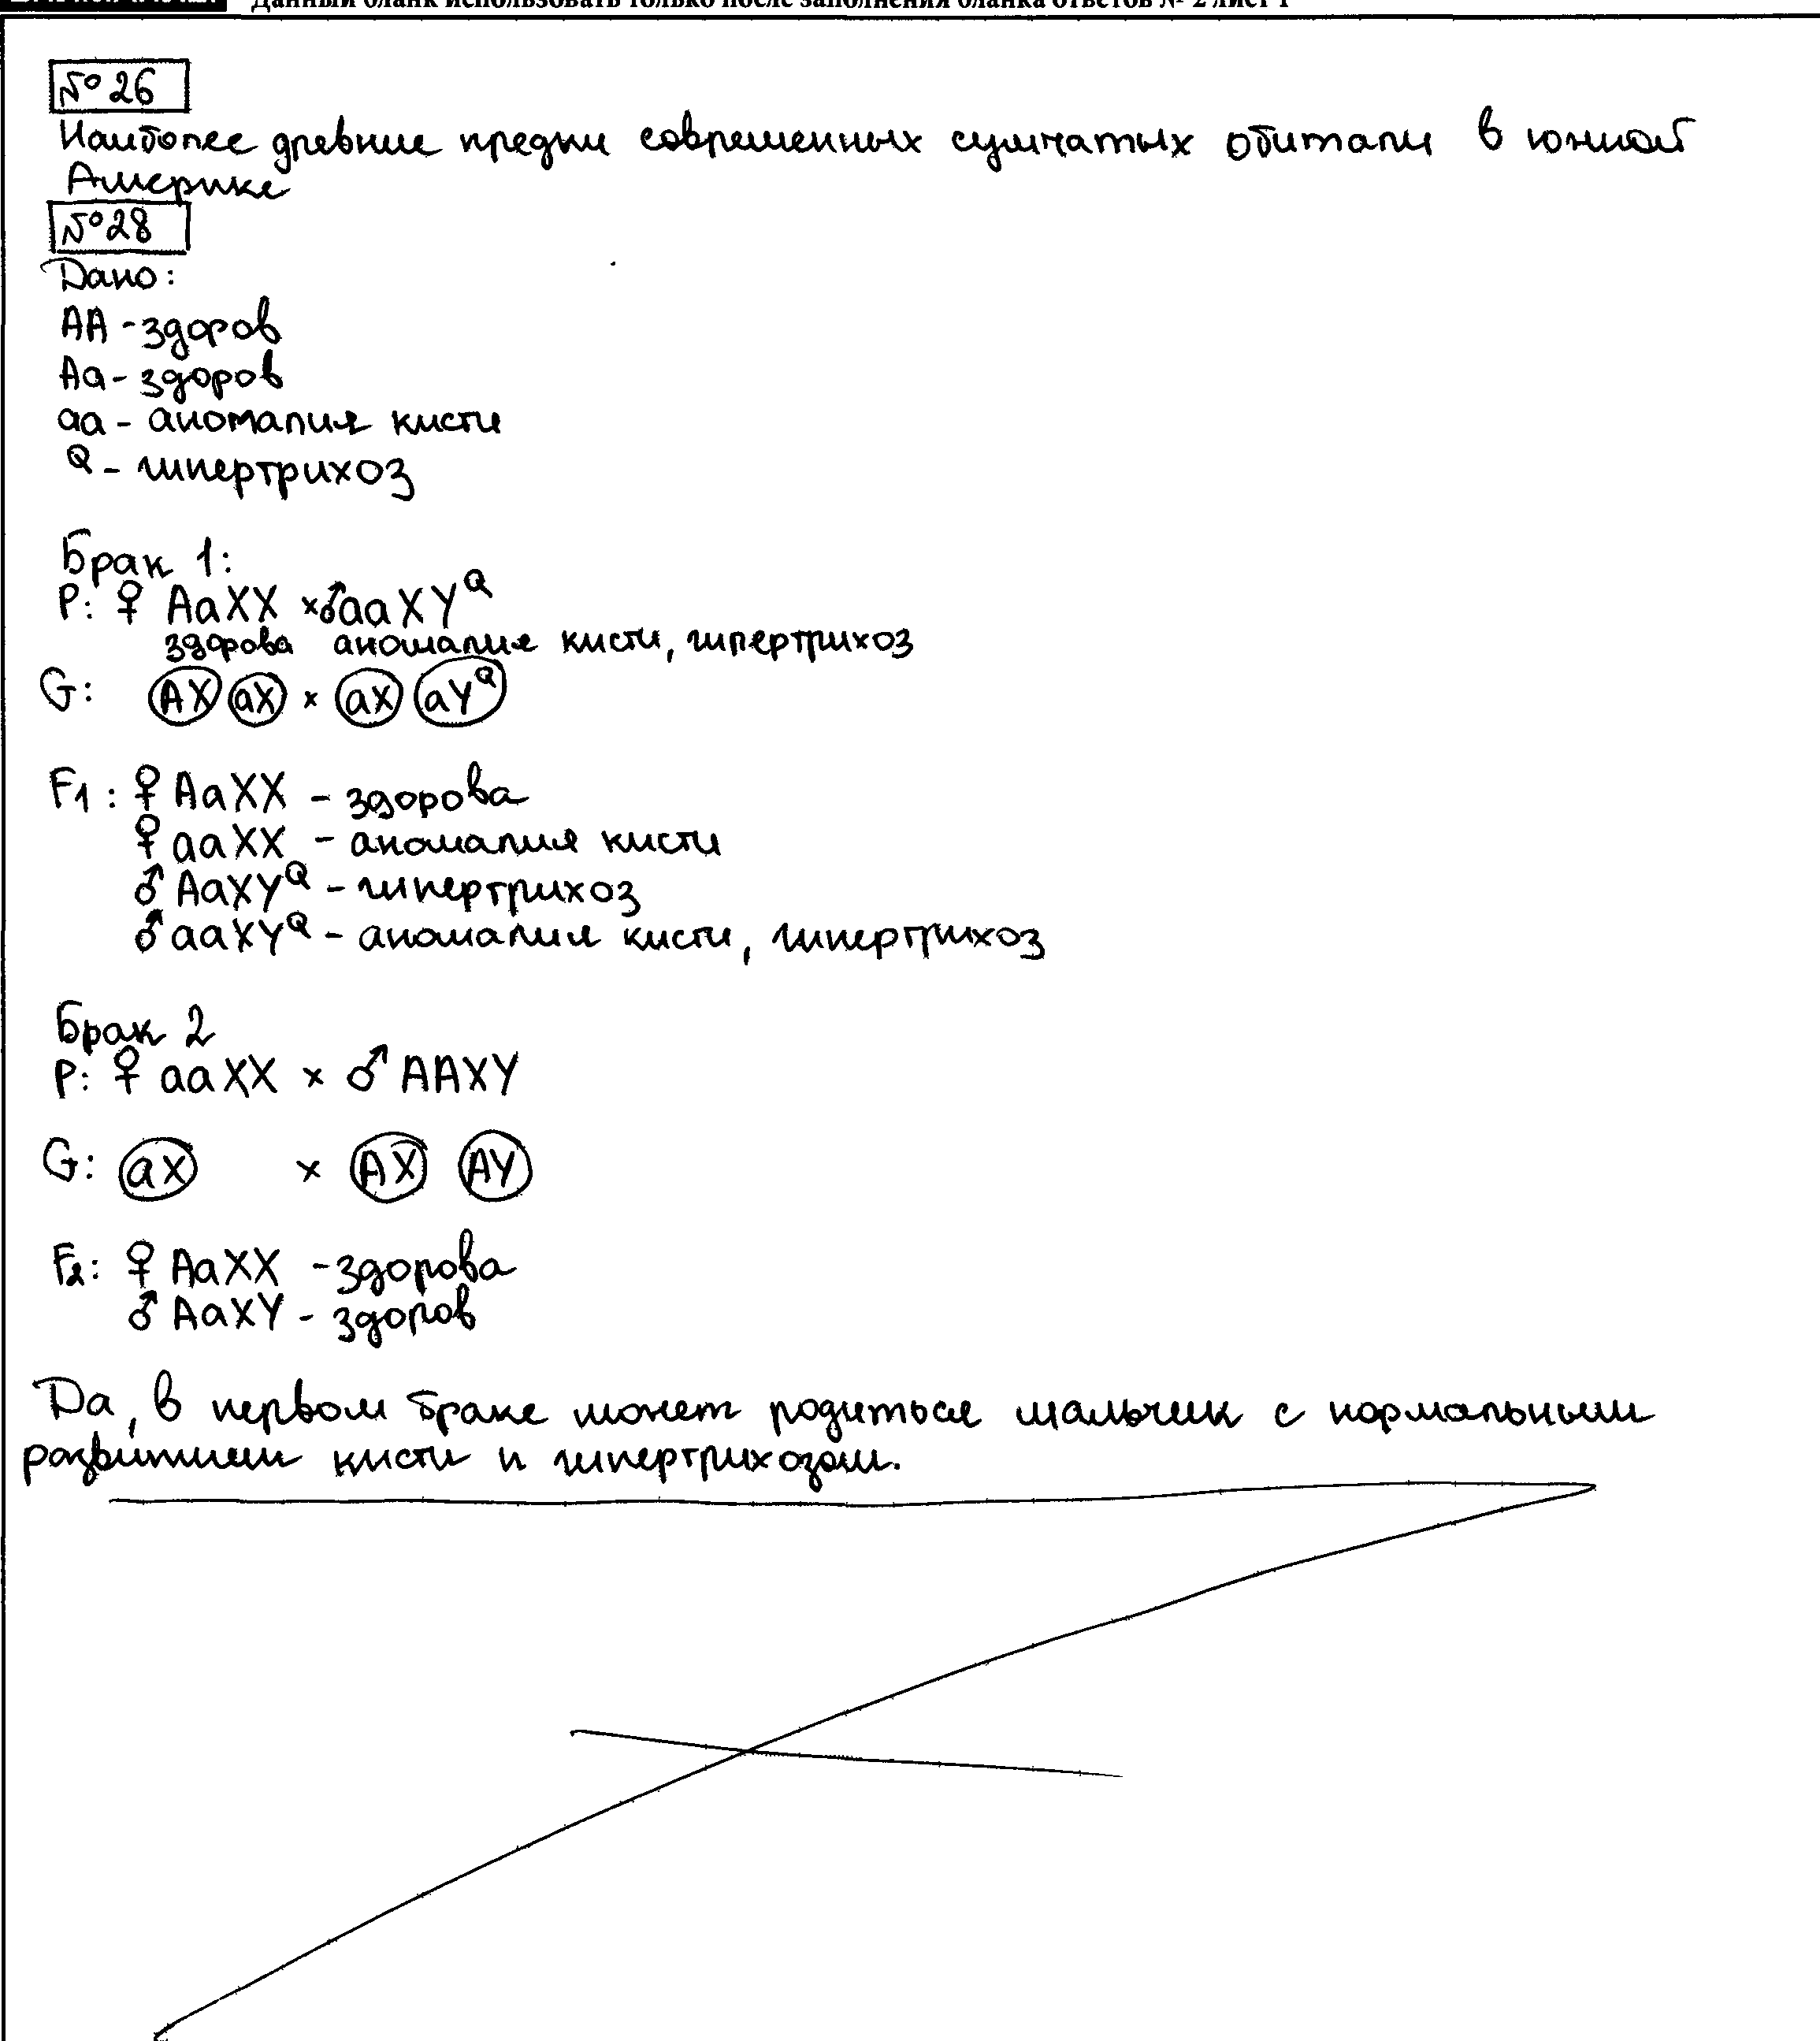 Данный бланк использовать только после заполнения бланка ответов № 2 лист 1
№26
Наиболее древние предки современных сумчатых обитали в южной
Америке
№28
Дано:
AA - здоров
Aa - здоров
aa - аномалия кисти
Q - гипертрихоз
Брак 1:
P: ♀ AaXX × ♂aaXY^Q
здорова аномалия кисти, гипертрихоз
G: AX aX × aX aY^Q
F1: ♀ AaXX - здорова
♀ aaXX - аномалия кисти
♂ AaXY^Q - гипертрихоз
♂ aaXY^Q - аномалия кисти, гипертрихоз
Брак 2
P: ♀ aaXX × ♂ AAXY
G: aX × AX AY
F2: ♀ AaXX - здорова
♂ AaXY - здоров
Да, в первом браке может родиться мальчик с нормальным
развитием кисти и гипертрихозом.